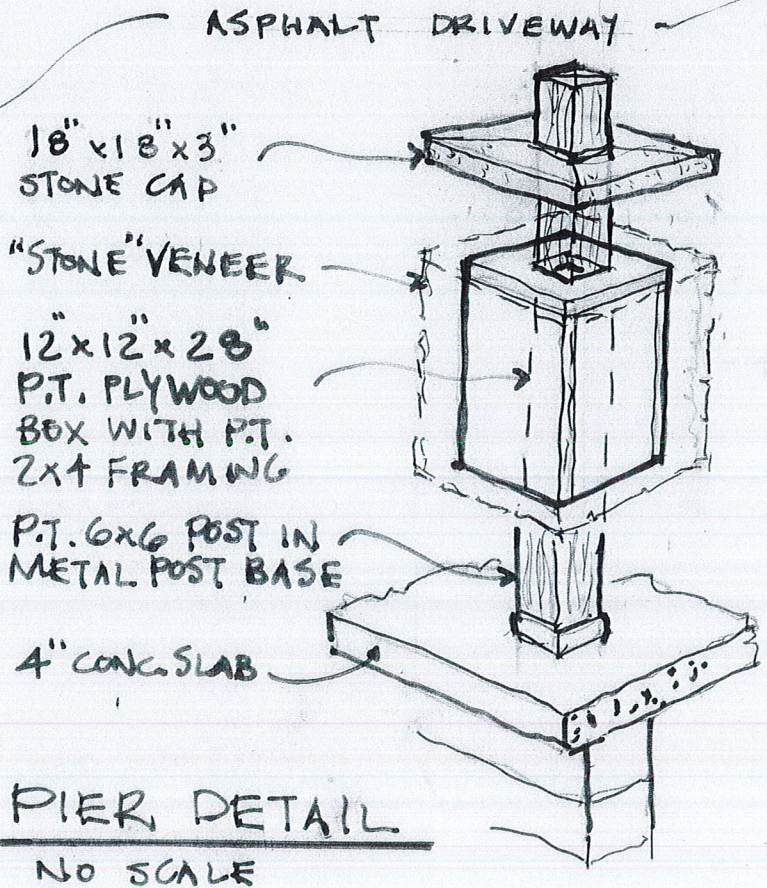 ASPHALT DRIVEWAY
18" x 18" x 3"
STONE CAP
"STONE" VENEER
12" x 12" x 28"
P.T. PLYWOOD
BOX WITH P.T.
2x4 FRAMING
P.T. 6x6 POST IN
METAL POST BASE
4" CONC. SLAB
PIER DETAIL
NO SCALE